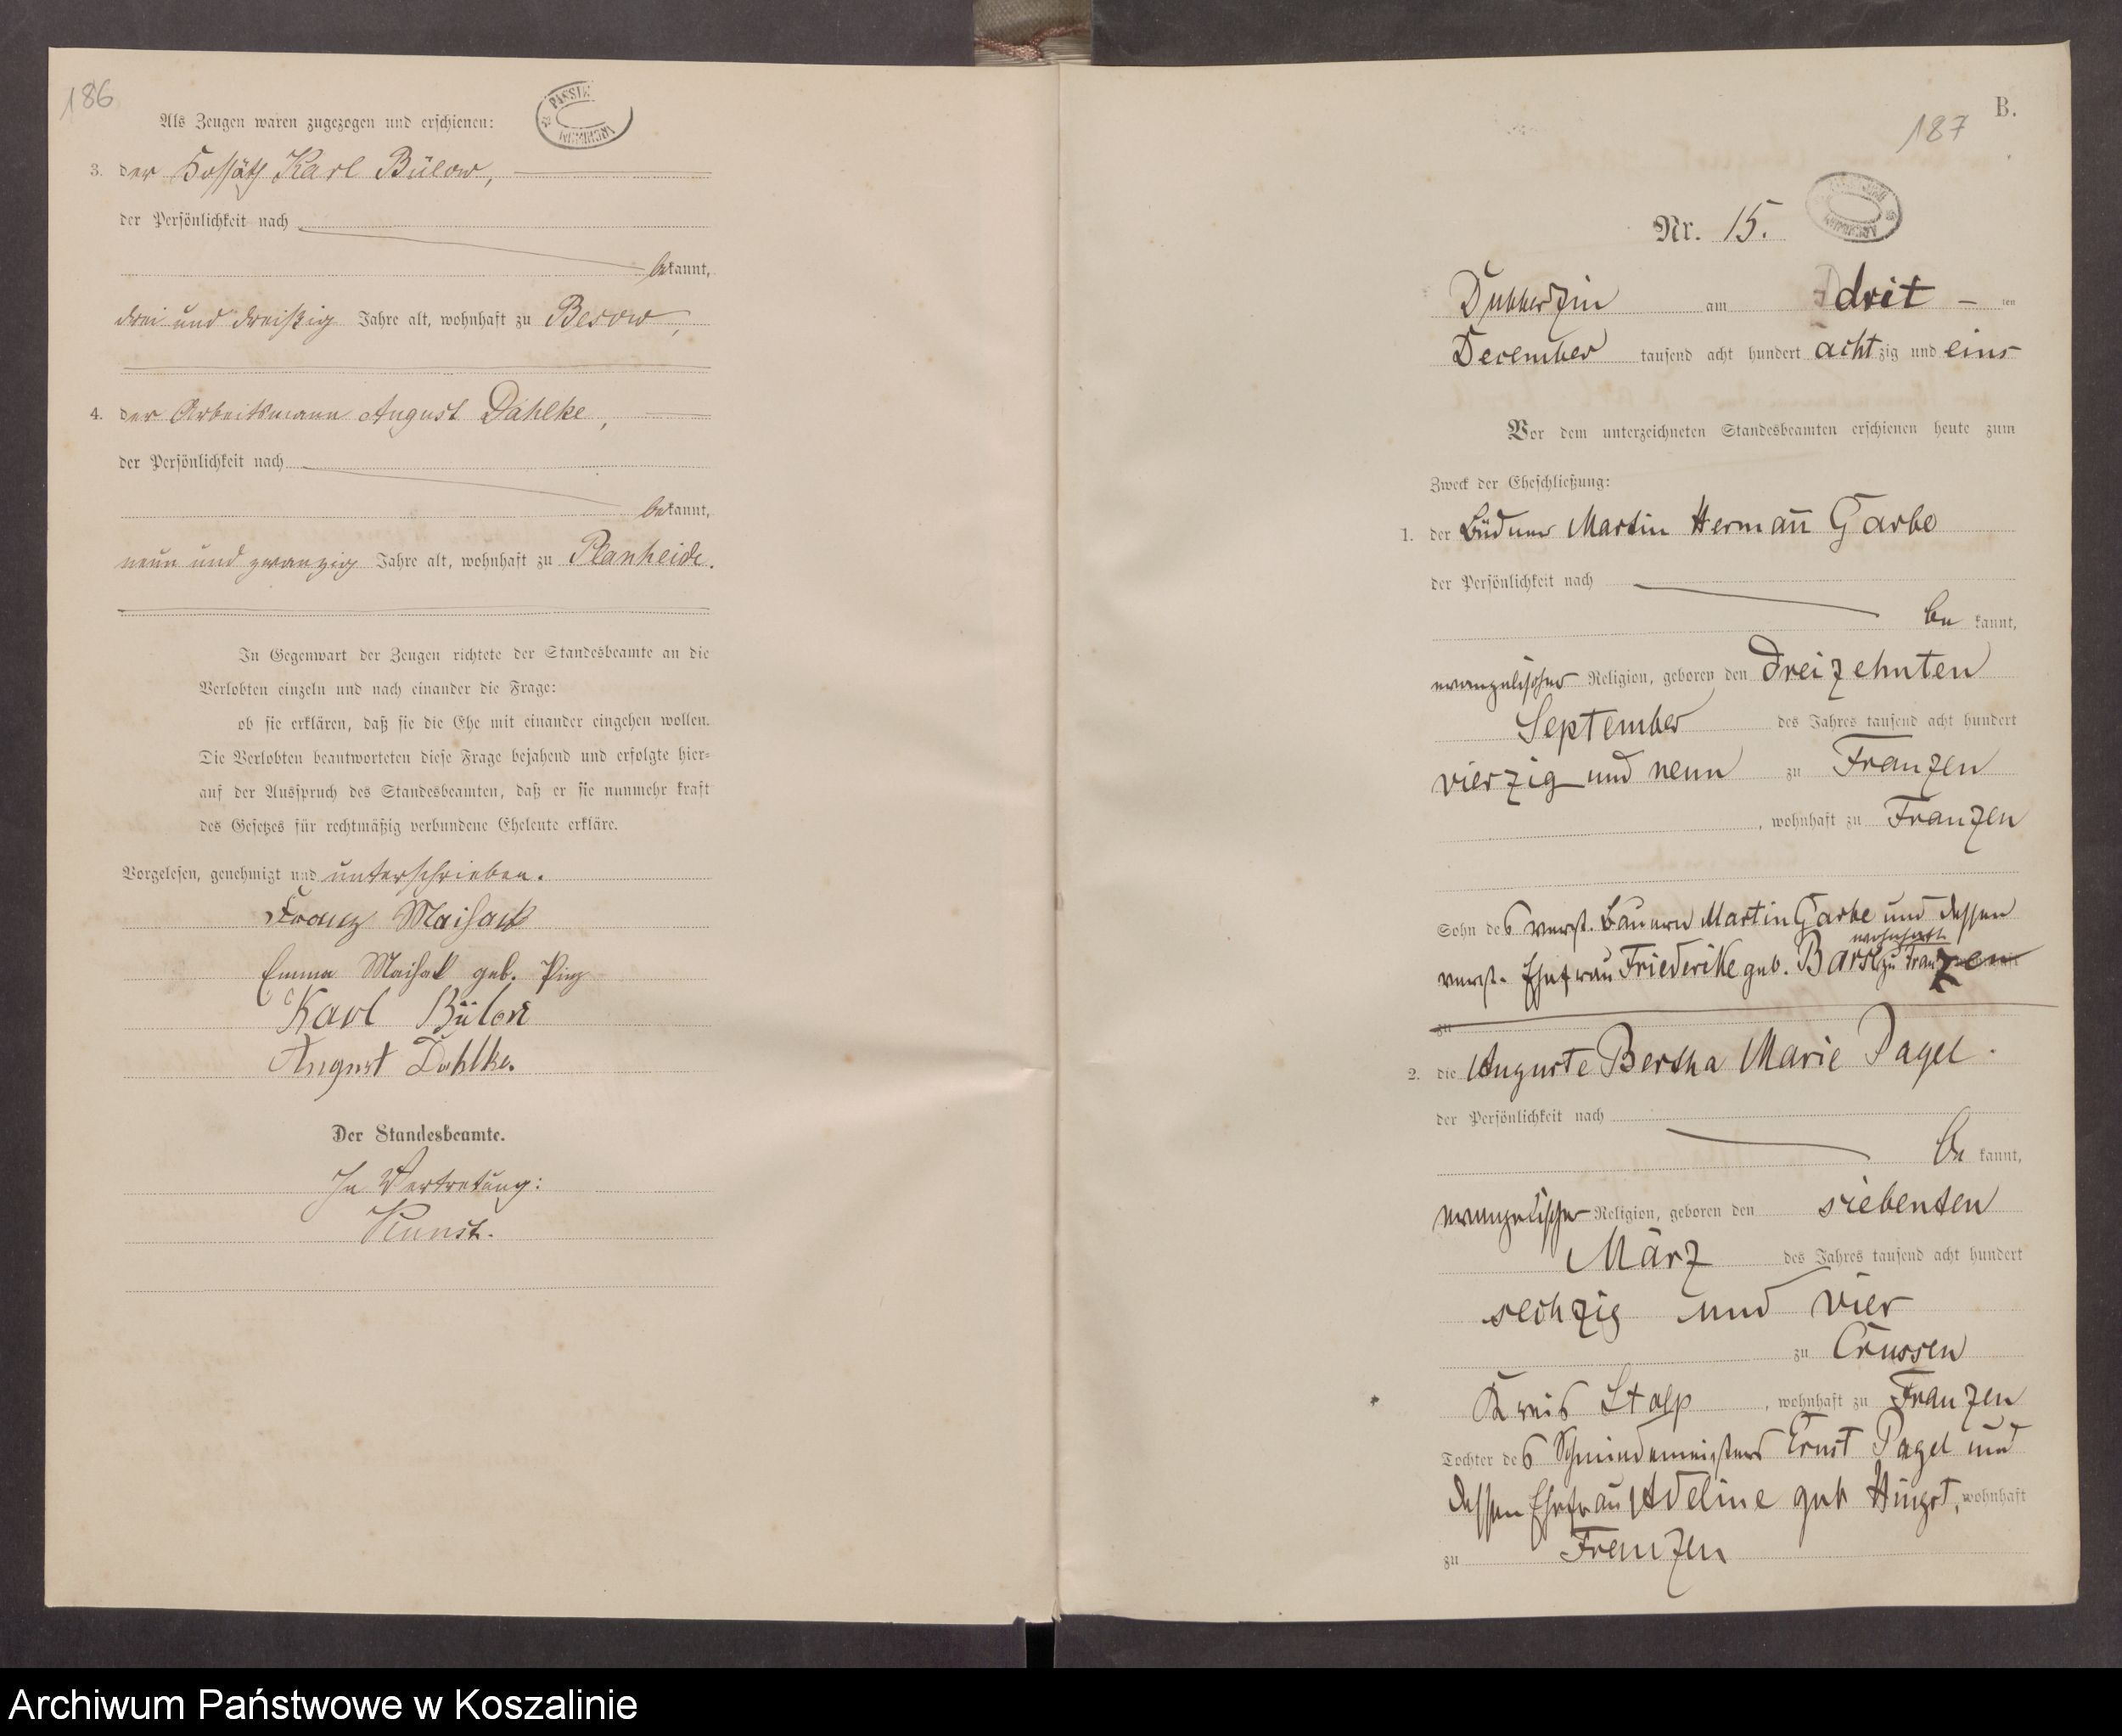 186
Als Zeugen waren zugezogen und erschienen:
3. der Kossäth Karl Bülow,
der Persönlichkeit nach
bekannt,
drei und dreißig Jahre alt, wohnhaft zu Besow,
4. der Arbeitsmann August Dahlke,
der Persönlichkeit nach
bekannt,
neun und zwanzig Jahre alt, wohnhaft zu Planheide.
In Gegenwart der Zeugen richtete der Standesbeamte an die
Verlobten einzeln und nach einander die Frage:
ob sie erklären, daß sie die Ehe mit einander eingehen wollen.
Die Verlobten beantworteten diese Frage bejahend und erfolgte hier-
auf der Ausspruch des Standesbeamten, daß er sie nunmehr kraft
des Gesetzes für rechtmäßig verbundene Eheleute erkläre.
Vorgelesen, genehmigt und unterschrieben.
Franz Maisak
Emma Maisak geb. Piez
Karl Bülow
August Dahlke.
Der Standesbeamte.
In Vertretung:
Kunst.
B.
187
Nr. 15.
Dubberzin am drit - ten
December tausend acht hundert achtzig und eins
Vor dem unterzeichneten Standesbeamten erschienen heute zum
Zweck der Eheschließung:
1. der Büdner Martin Hermañ Garbe
der Persönlichkeit nach
be kannt,
evangelischer Religion, geboren den dreizehnten
September des Jahres tausend acht hundert
vierzig und neun zu Franzen
, wohnhaft zu Franzen
Sohn des verst. Bauern Martin Garbe und dessen
wohnhaft
verst. Ehefrau Friederike geb. zu Franzen
zu
2. die Auguste Bertha Marie Pagel.
der Persönlichkeit nach
be kannt,
evangelischer Religion, geboren den siebenten
März des Jahres tausend acht hundert
sechzig und vier
zu Crussen
Kreis Stolp, wohnhaft zu Franzen
Tochter des Schmiedemeisters Ernst Pagel und
dessen Ehefrau Adeline geb Hingst, wohnhaft
zu Franzen
Archiwum Państwowe w Koszalinie